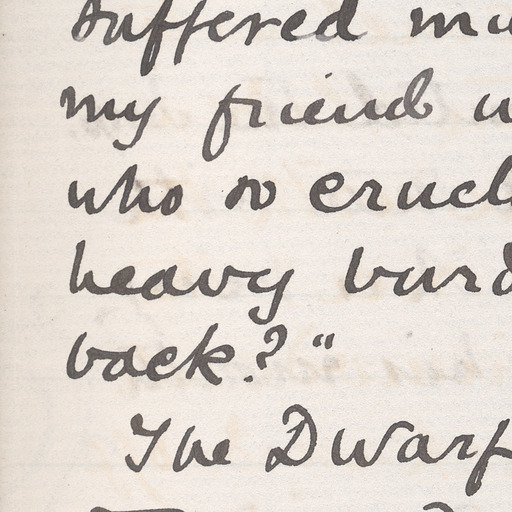 suffered mu
my friend w
who so cruel
heavy burd
back?"
The Dwarf